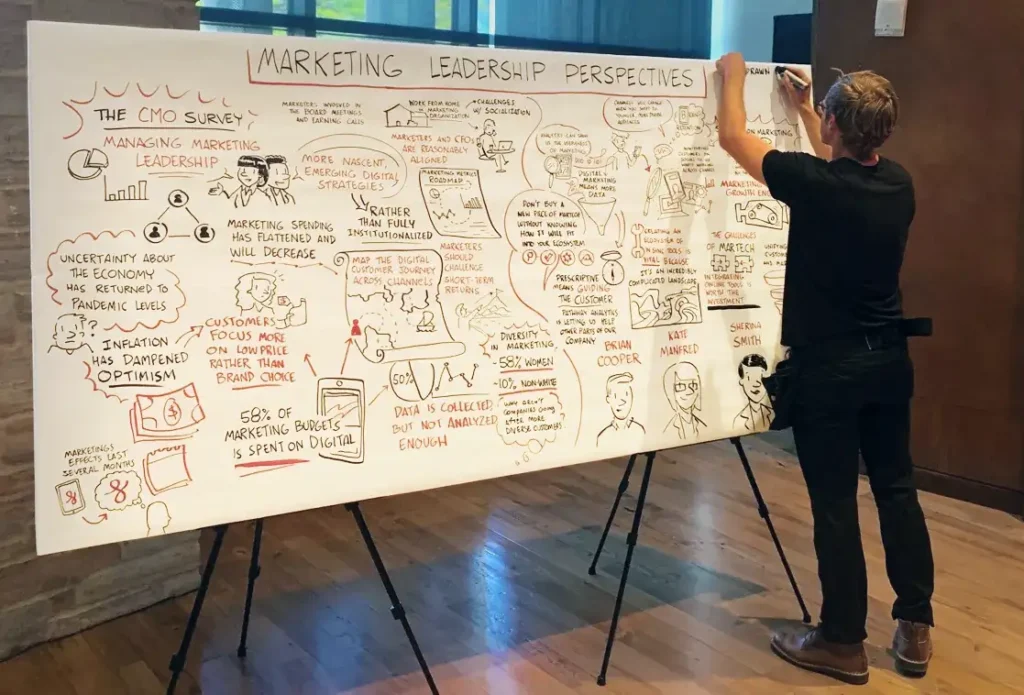 MARKETING LEADERSHIP PERSPECTIVES
DRAWN
THE CMO SURVEY
MANAGING MARKETING
LEADERSHIP
MARKETERS INVOLVED IN
THE BOARD MEETINGS
AND EARNING CALLS
WORK FROM HOME
MARKETING
ORGANIZATION
CHALLENGES
W/ SOCIALIZATION
MARKETERS AND CFOS
ARE REASONABLY
ALIGNED
MORE NASCENT,
EMERGING DIGITAL
STRATEGIES
RATHER
THAN FULLY
INSTITUTIONALIZED
MARKETING METRICS
ROADMAP
MARKETING SPENDING
HAS FLATTENED AND
WILL DECREASE
UNCERTAINTY ABOUT
THE ECONOMY
HAS RETURNED TO
PANDEMIC LEVELS
INFLATION
HAS DAMPENED
OPTIMISM
CUSTOMERS
FOCUS MORE
ON LOW PRICE
RATHER THAN
BRAND CHOICE
$
MARKETING'S
EFFECTS LAST
SEVERAL MONTHS
58% OF
MARKETING BUDGETS
IS SPENT ON DIGITAL
MAP THE DIGITAL
CUSTOMER JOURNEY
ACROSS CHANNELS
MARKETERS
SHOULD
CHALLENGE
SHORT-TERM
RETURNS
50%
DATA IS COLLECTED
BUT NOT ANALYZED
ENOUGH
DIVERSITY
IN MARKETING
-58% WOMEN
-10% NON-WHITE
WHY AREN'T
COMPANIES GOING
AFTER MORE
DIVERSE CUSTOMERS
DIGITAL
MARKETING
MEANS MORE
DATA
DON'T BUY A
NEW PIECE OF MARTECH
WITHOUT KNOWING
HOW IT WILL FIT
INTO YOUR ECOSYSTEM
PRESCRIPTIVE
MEANS GUIDING
THE CUSTOMER
PATHWAY ANALYTICS
IS LETTING US HELP
OTHER PARTS OF OUR
COMPANY
CREATING AN
ECOSYSTEM OF
TOOLS IS
VITAL BECAUSE
IT'S AN INCREDIBLY
COMPLICATED LANDSCAPE
THE CHALLENGES
OF MARTECH
INTEGRATING
TOOLS IS
WORTH THE
INVESTMENT
BRIAN
COOPER
KATE
MANFRED
SMITH